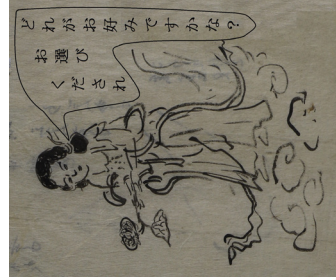 どれがお好みですかな？
お選び
くだされ